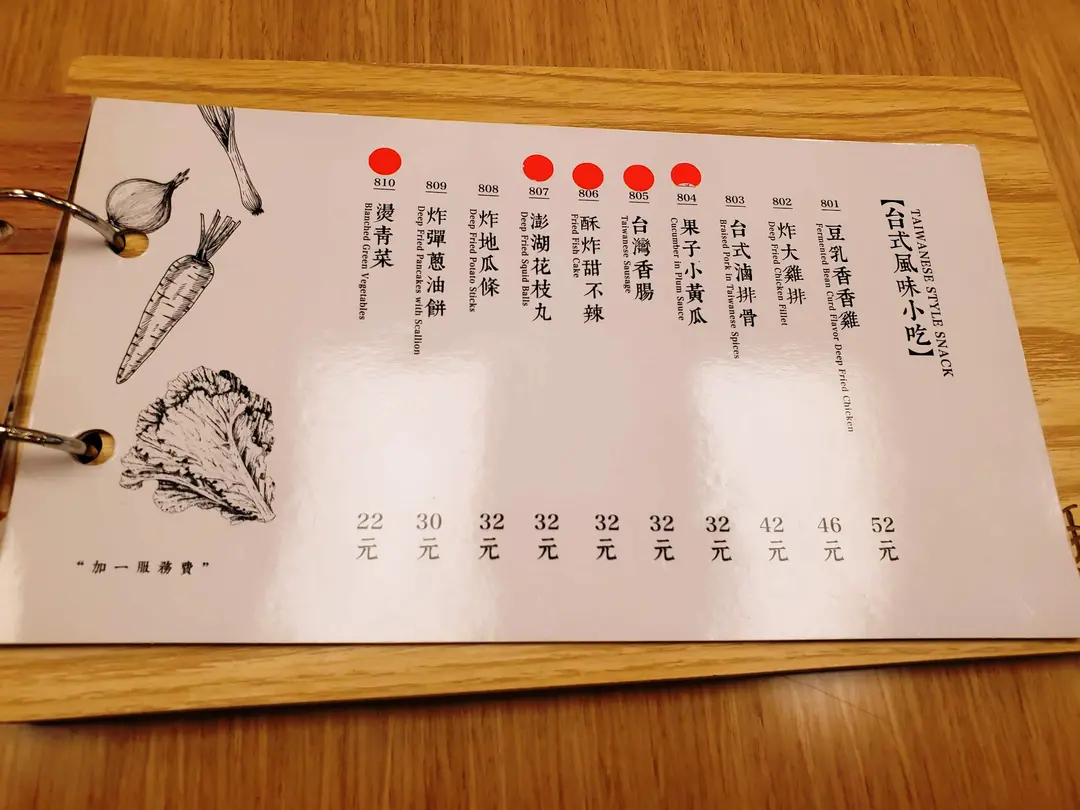 【台式風味小吃】
TAIWANESE STYLE SNACK
801
豆乳香香雞
Fermented Bean Curd Flavor Deep Fried Chicken
52元
802
炸大雞排
Deep Fried Chicken Fillet
46元
803
台式滷排骨
Braised Pork in Taiwanese Spices
42元
804
果子小黃瓜
Cucumber in Plum Sauce
32元
805
台灣香腸
Taiwanese Sausage
32元
806
酥炸甜不辣
Fried Fish Cake
32元
807
澎湖花枝丸
Deep Fried Squid Balls
32元
808
炸地瓜條
Deep Fried Potato Sticks
32元
809
炸彈蔥油餅
Deep Fried Pancakes with Scallion
30元
810
燙青菜
Blanched Green Vegetables
22元
“加一服務費”